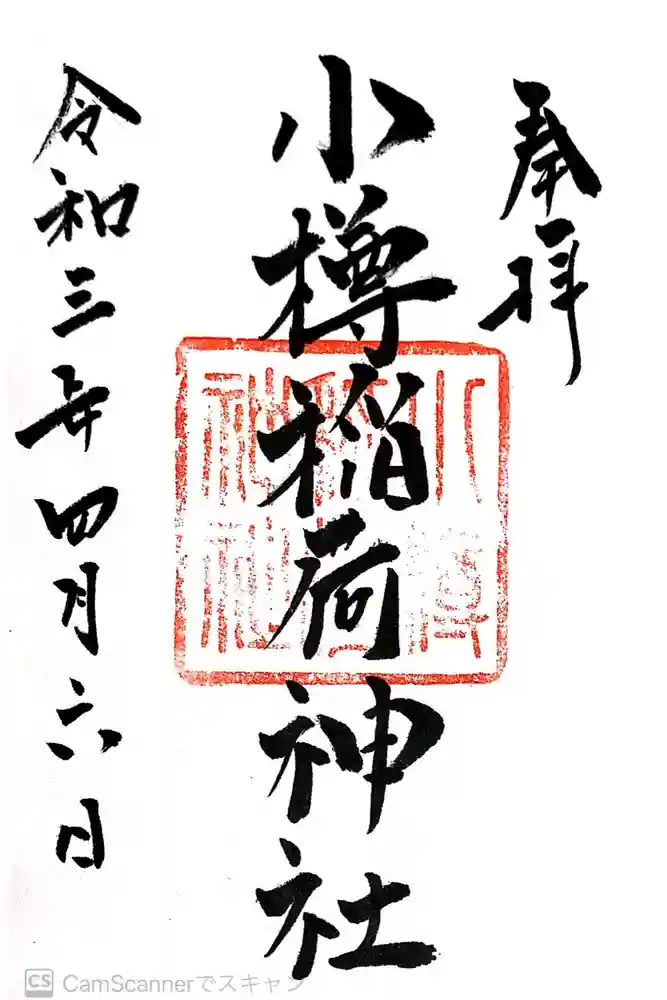 奉拝
小樽稲荷神社
令和三年四月六日
小樽稲荷神社
CS CamScannerでスキャン